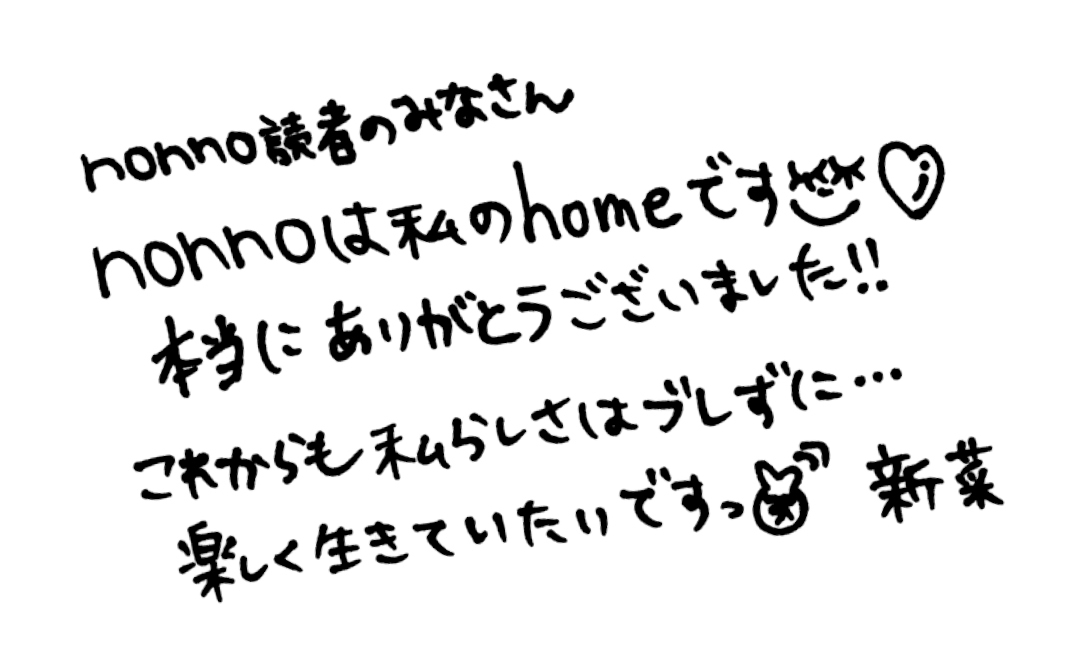 nonno読者のみなさん
nonnoは私のhomeです
本当にありがとうございました!!
これからも私らしさはブレずに…
楽しく生きていたいですっ 新菜